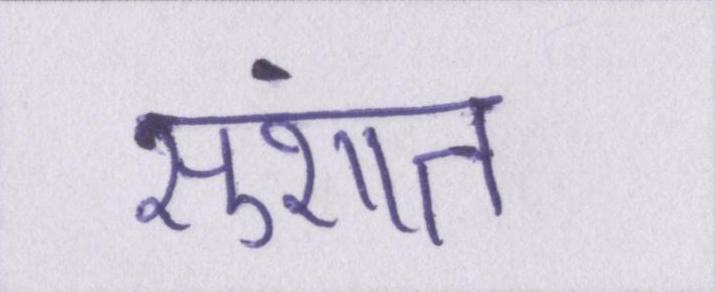 सुंशात